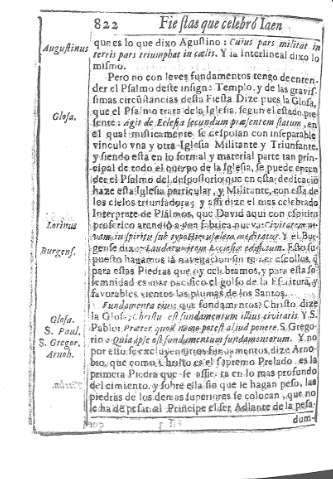 822 Fiestas que celebró Iaen
Augustinus
que es lo que dixo Agustino: Cuius pars militat in
terris pars triumphat in cœlis. Y la interlineal dixo lo
mismo.
Pero no con leves fundamentos tengo de enten-
der el Psalmo deste insigne Templo, y de las gravis-
simas circũstãcias desta Fiesta. Dize pues la Glosa,
Glosa.
que el Psalmo trata de la Iglesia, segun el estado pre
sente: agit de Ecclesia secundum præsentem statum, en
el qual misticamente se desposan con inseparable
vinculo vna y otra Iglesia Militante y Triunfante,
y siendo esta en lo formal y material parte tan prin-
cipal de todo el cuerpo de la Iglesia, se puede enten
der el Psalmo del desposorio que en esta dedicaciõ
haze esta Iglesia particular, y Militante, con esta de
los cielos triunfadora; y assi dize el mas celebrado
Interprete de Psalmos, que David aqui con espiritu
Lorinus
profetico atendió a una fabrica nueva: Civitatem
in spiritu sub
Burgens.
Y el Bur-
gense dize:
puesto hagamos la navegacion sin temer escollos, q̃
para estas Piedras que oy celebramos, y para esta so
lemnidad es mar pacifico el golfo de la Escritura, y
favorables vientos las plumas de los Santos.
Fundamenta eius, que fundamentos? Christo, dize
Glosa.
la Glosa: Christus est fundamentum illius civitatis. Y S.
S. Paul.
Pablo: Præter quod nemo potest aliud ponere. S. Grego-
S. Gregor.
rio: Quia ipse est fundamentum fundamentorum. Y no
Arnob.
por esto se excluyen otros fundamentos, dize Arno-
bio, que como Christo es el supremo Prelado es la
primera Piedra que se assienta en lo mas profundo
del cimiento, y sobre ella sin que le hagan peso, las
piedras de los demas superiores se colocan, que no
le ha de pesar al Principe el ser Adlante de la pesa-
dum-